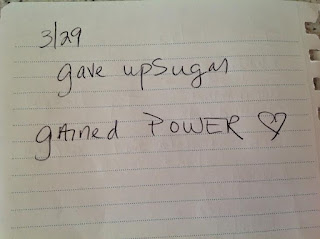 3/29
gave up Sugar
gained POWER ♡